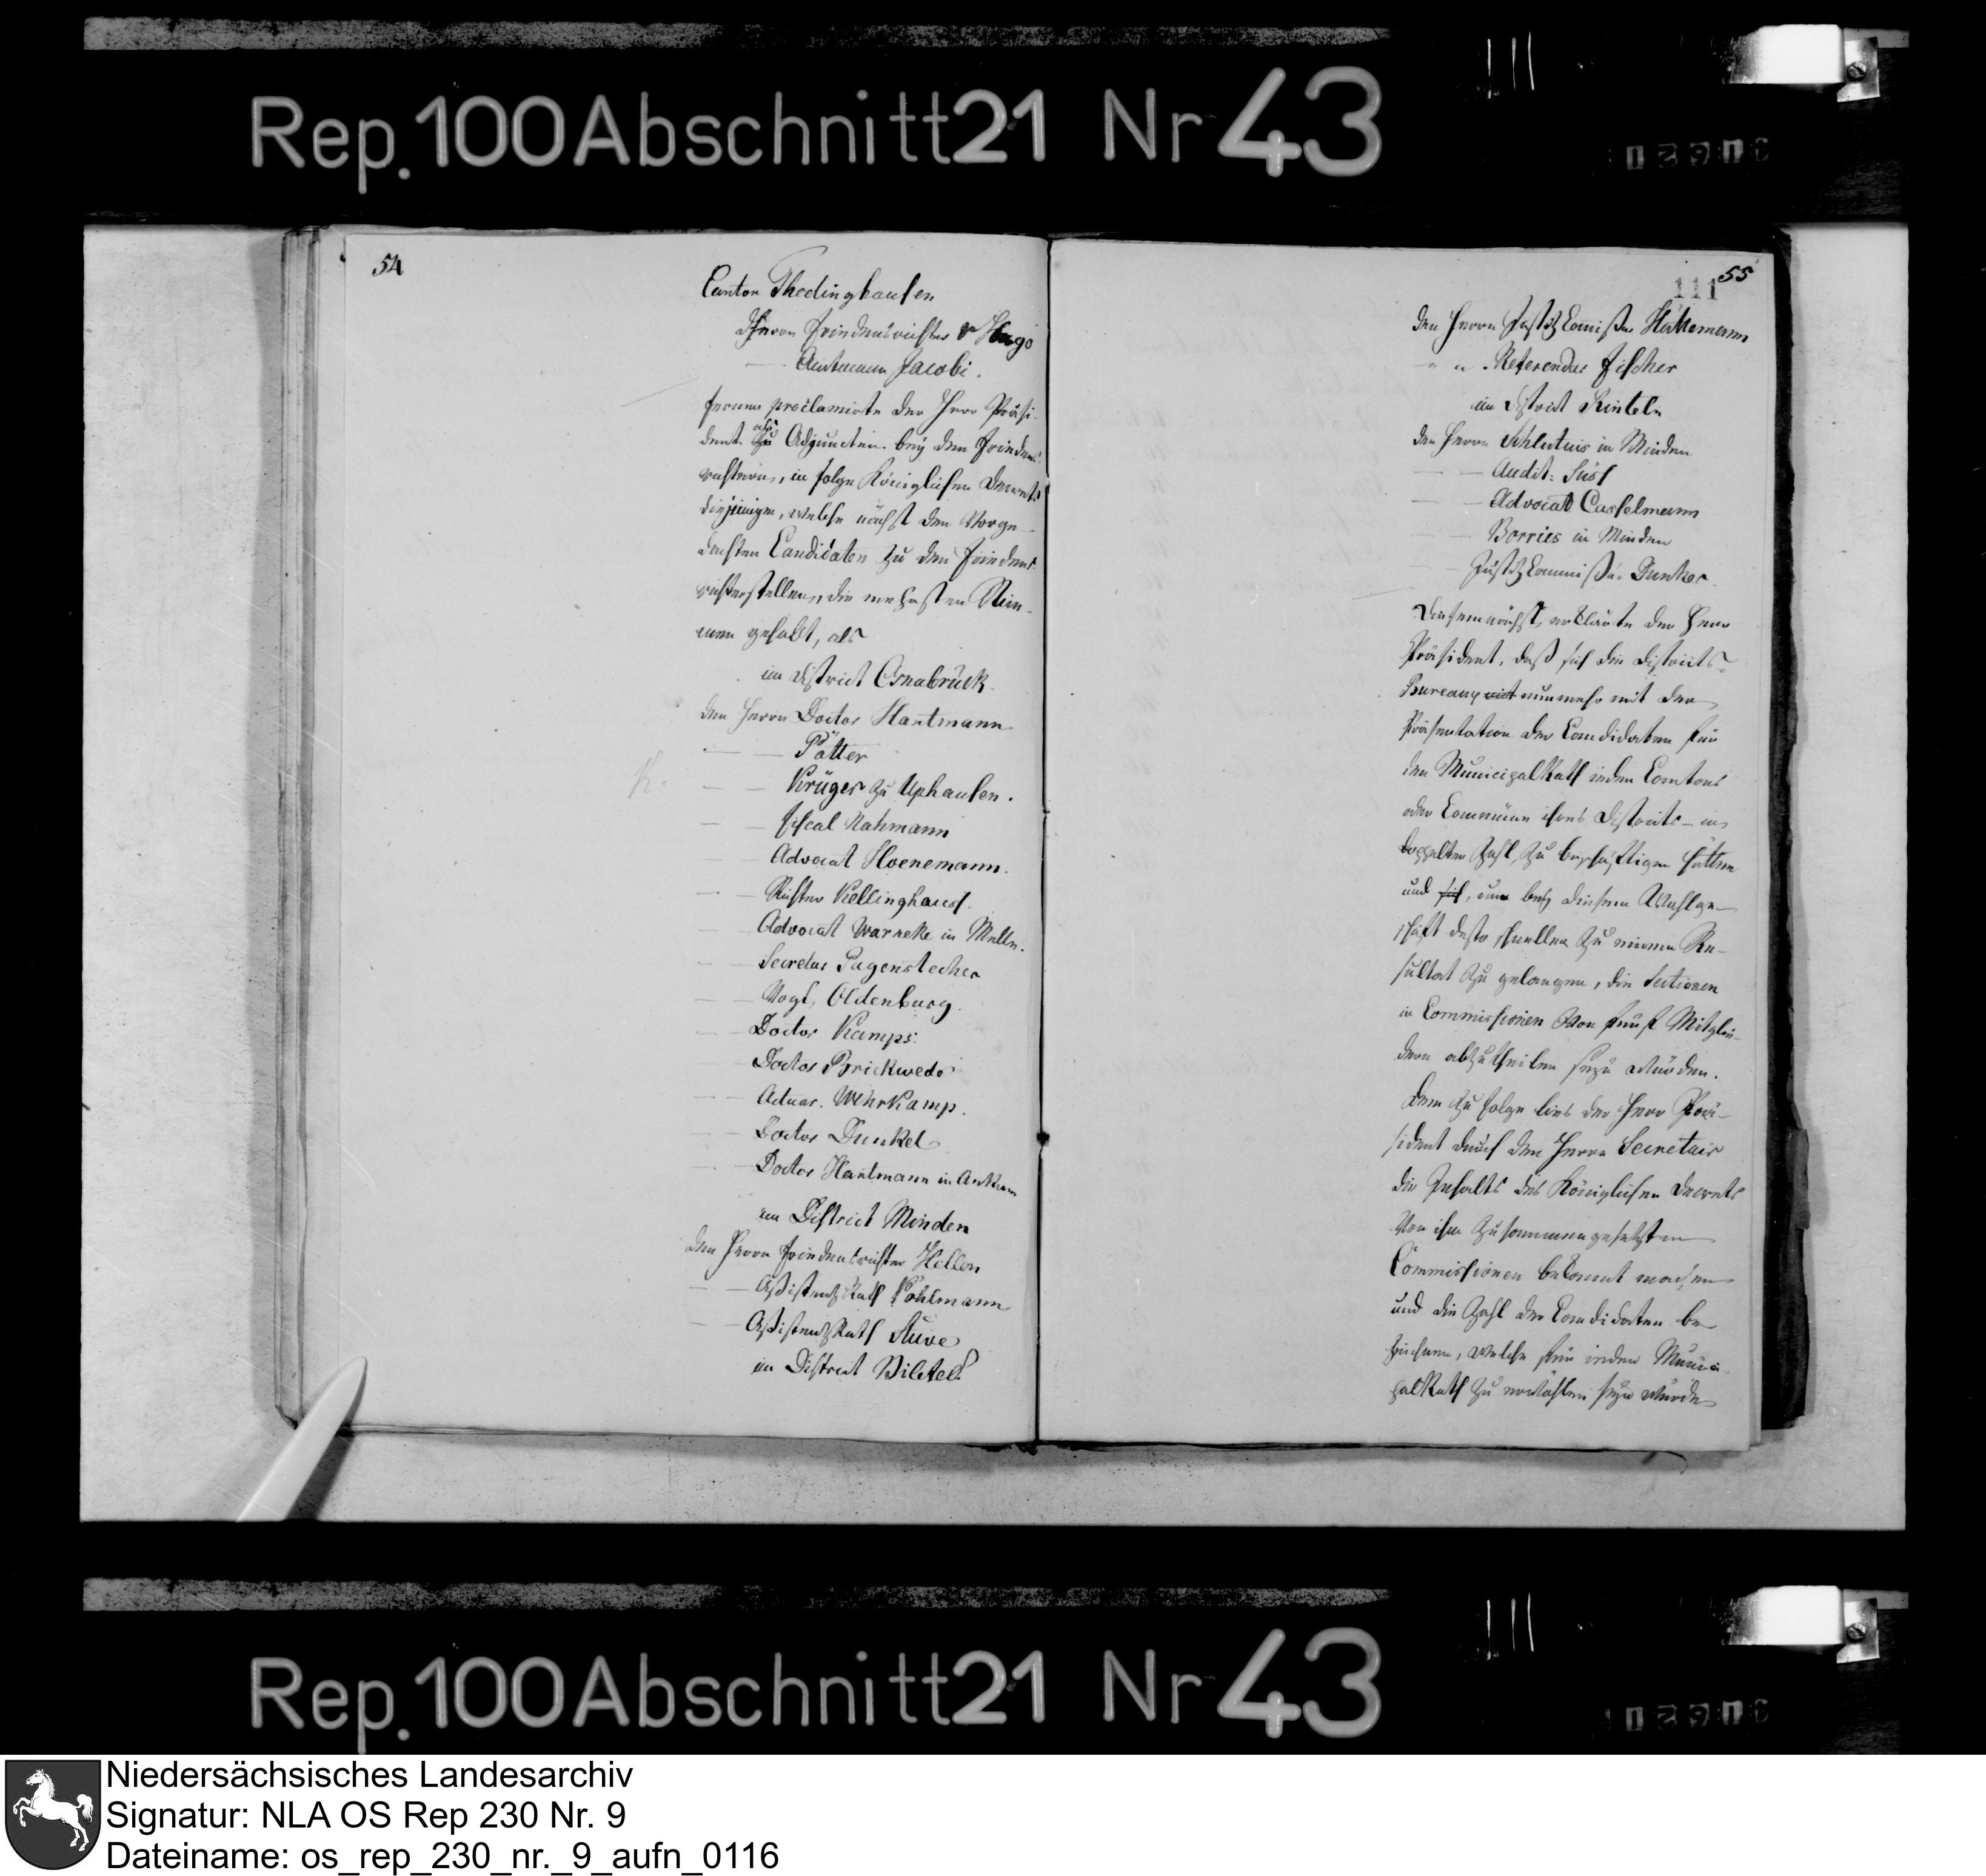 Rep. 100 Abschnitt 21 Nr 43
12916
54
Canton Thedinghausen
Herrn Friedensrichter v Hugo
— Amtmann Jacobi.
ferner proclamirte der Herr Präsi-
dent als zu Adjuncten bey den Friedens-
richtern, in folge Königlichen Decrets
diejenigen, welche nächst den Vorge-
dachten Candidaten zu den Friedens
richterstellen, die mehrsten Stim-
men gehabt, als
im District Osnabrück.
den Herrn Doctor Hartmann
— — Pötter
— — Krüger zu Uphausen.
— — fiscal Nahmann
Advocat Hoenemann.
— — Richter Kellinghaus.
— Advocat Warneke in Melle.
— — Secretar Pagenstecher
— — Vogt Oldenburg.
— — Doctor Kamps.
— — Doctor Brickwede
— — Actuar. Wehrkamp.
— — Doctor Dunkel
— — Doctor Hartmann in Ankum
im District Minden
den Herrn Friedensrichter Hellen
— — Assistenz Rath Pöhlmann
— — Assistenz Rath Stüve
im District Bilefeld
55
111
den Herrn Justiz Commissär
" " Referendar fischer
im District Rinteln
den Herrn Schlutius in Minden
— — Audit: Süs
— — Advocat Casselmann
— — Borries in Minden
— — Justiz Commissär Dunker
Diesemnächst, erklärte der Herr
Präsident, daß sich die Districts-
Bureaux mit nunmehr mit der
Präsentation der Candidaten für
den Municipal Rath jeden Cantons
oder Commune ihres Districts – in
doppelter Zahl, zu beschäftigen hätten
und sich, um bey diesem Wahlge-
schäft desto schneller zu einem Re-
sultat zu gelangen, die Sectionen
in Commissionen Von fünf Mitglie-
dern abzutheilen seyn würden.
Dem zu folge lies der Herr Prä-
sident durch den Herrn Secretair
die Inhalts des Königlichen Decrets
Von ihm zusammengesetzten
Commissionen bekannt machen
und die Zahl der Candidaten be-
zeichnen, welche für jeden Munici-
pal Rath zu erwählen seyn würde
Rep. 100 Abschnitt 21 Nr 43
12916
Niedersächsisches Landesarchiv
Signatur: NLA OS Rep 230 Nr. 9
Dateiname: os_rep_230_nr._9_aufn_0116